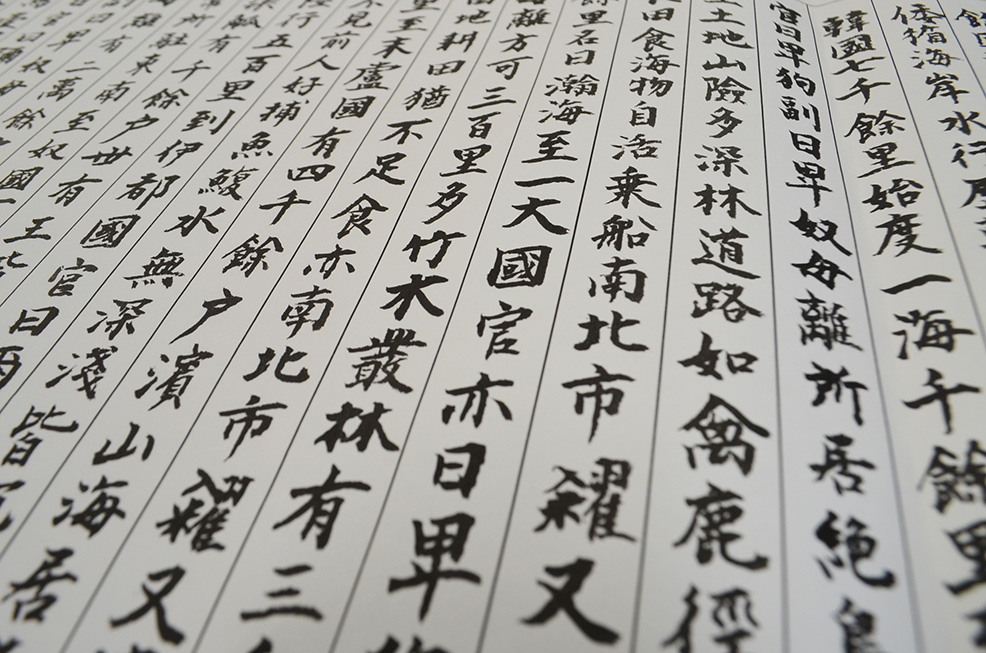 倭循海岸水行歷
韓國七千餘里始度一海千餘里
官曰卑狗副曰卑奴毋離所居絶島
土地山險多深林道路如禽鹿徑
田食海物自活乗船南北市糴又
餘里名曰瀚海至一大國官亦曰卑狗
離方可三百里多竹木叢林有三
田地耕田猶不足食亦南北市糴又
里至末盧國有四千餘戸濱山海居
不見前人好捕魚鰒水無深淺皆沉
行五百里到伊都國官曰
觚有千餘戸丗有王
所駐東南至奴國
有二萬餘